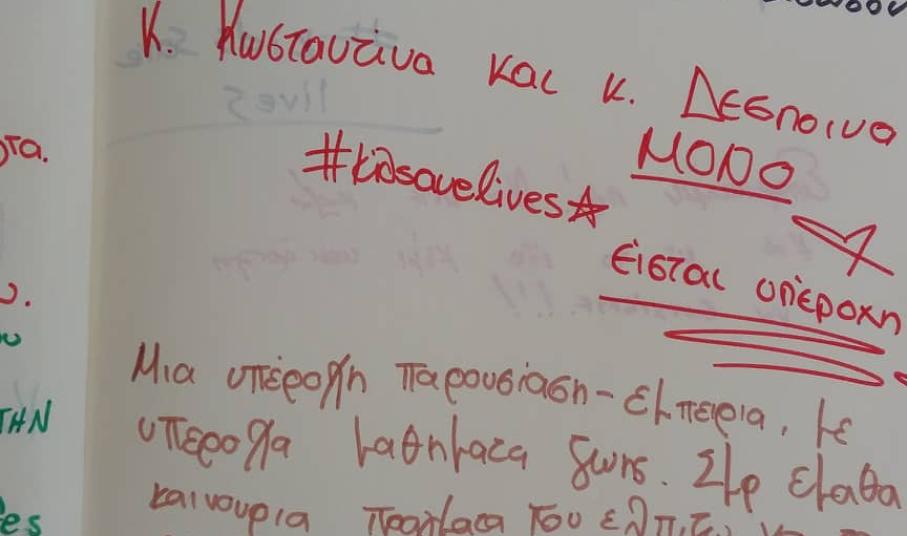 κ. Κωσταντίνα και κ. Δεσποινα
#kidsavelives
ΜΟΝΟ
είσται υπέροχη
Μια υπέροχη παρουσίαση - εμπειρια, με
υπεροχα μαθηματα ζωης. εμαθα
καινουρια πραγματα που ελπιζω να
ΤΗΝ